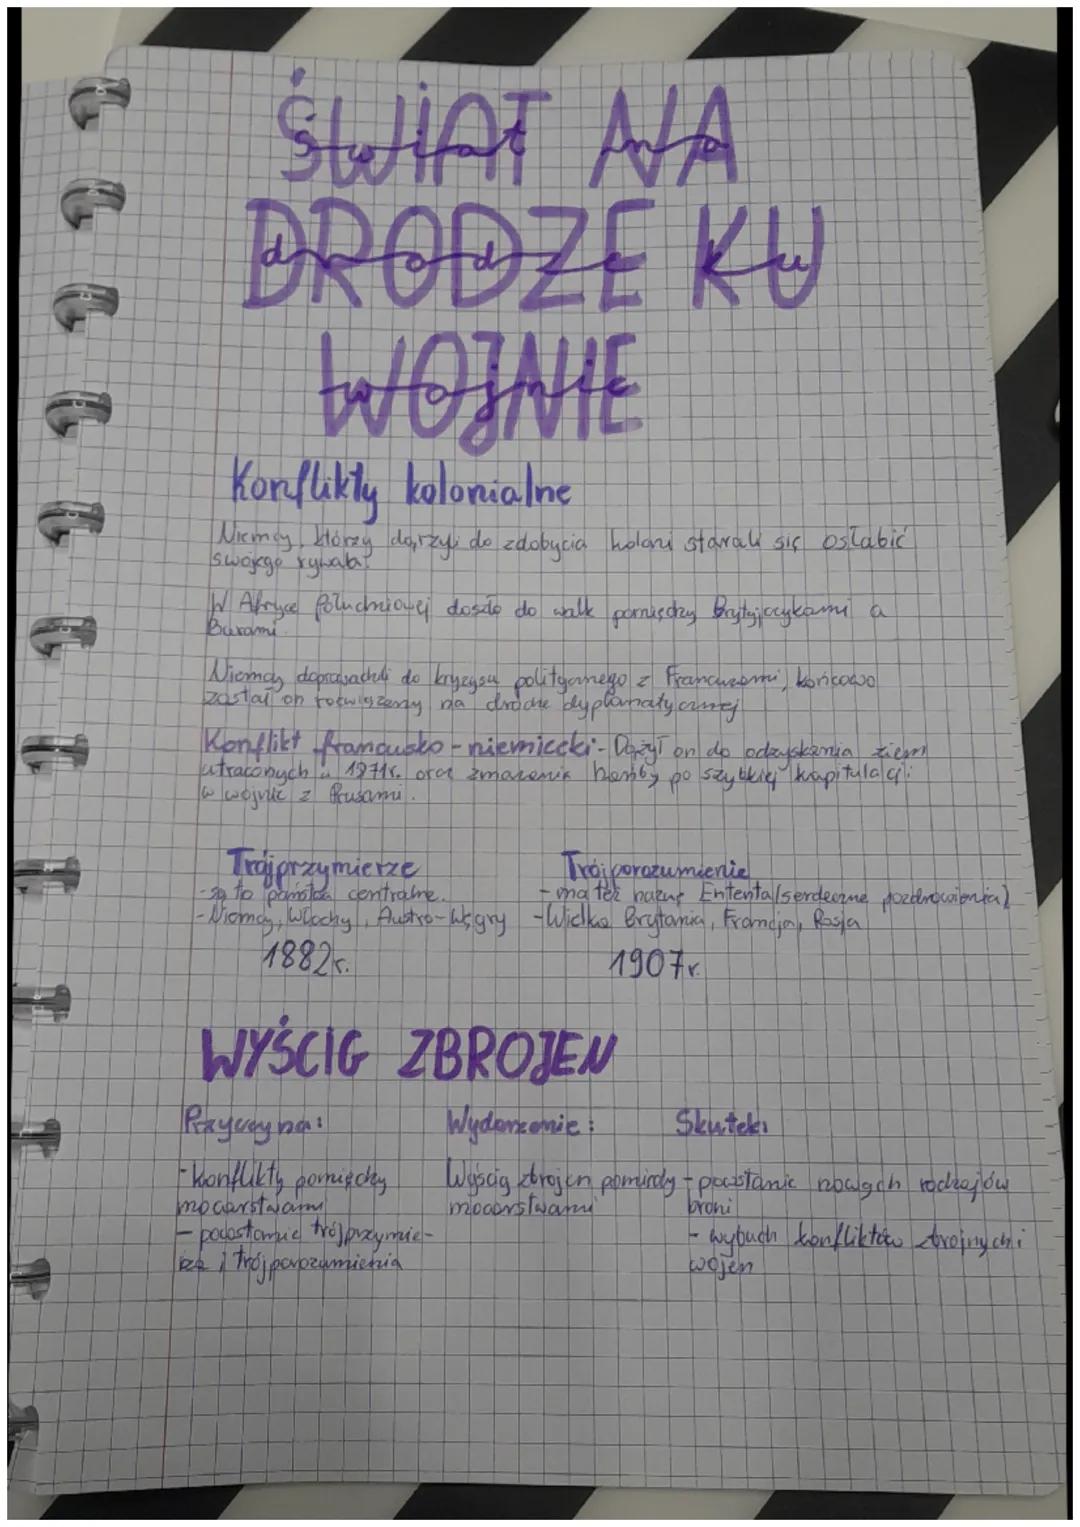 ŚWIAT NA
DRODZE KU
WOJNIE
Konflikty kolonialne
Niemcy, którzy dążyli do zdobycia koloni starali się osłabić
swojego rywala.
W Afryce Południowej doszło do walk pomiędzy Brytyjczykami a
Burami.
Niemcy doprowadzili do kryzysu politycznego z Francuzami, końcowo
został on rozwiązany na drodze dyplomatycznej
Konflikt francusko-niemiecki - Dążył on do odzyskania ziem
utraconych w 1871r. oraz zmazania hańby po szybkiej kapitulacji
w wojnie z Prusami.
Trójprzymierze
- są to państwa centralne.
- Niemcy, Włochy, Austro-Węgry
1882r.
Trójporozumienie
- ma też nazwę Ententa (serdeczne pozdrowienia)
- Wielka Brytania, Francja, Rosja
1907r.
WYŚCIG ZBROJEŃ
Przyczyna:
- konflikty pomiędzy
mocarstwami
- powstanie trójprzymie-
rza i trójporozumienia
Wydarzenie:
Wyścig zbrojeń pomiędzy
mocarstwami
Skutek:
- powstanie nowych rodzajów
broni
- wybuch konfliktów zbrojnych i
wojen